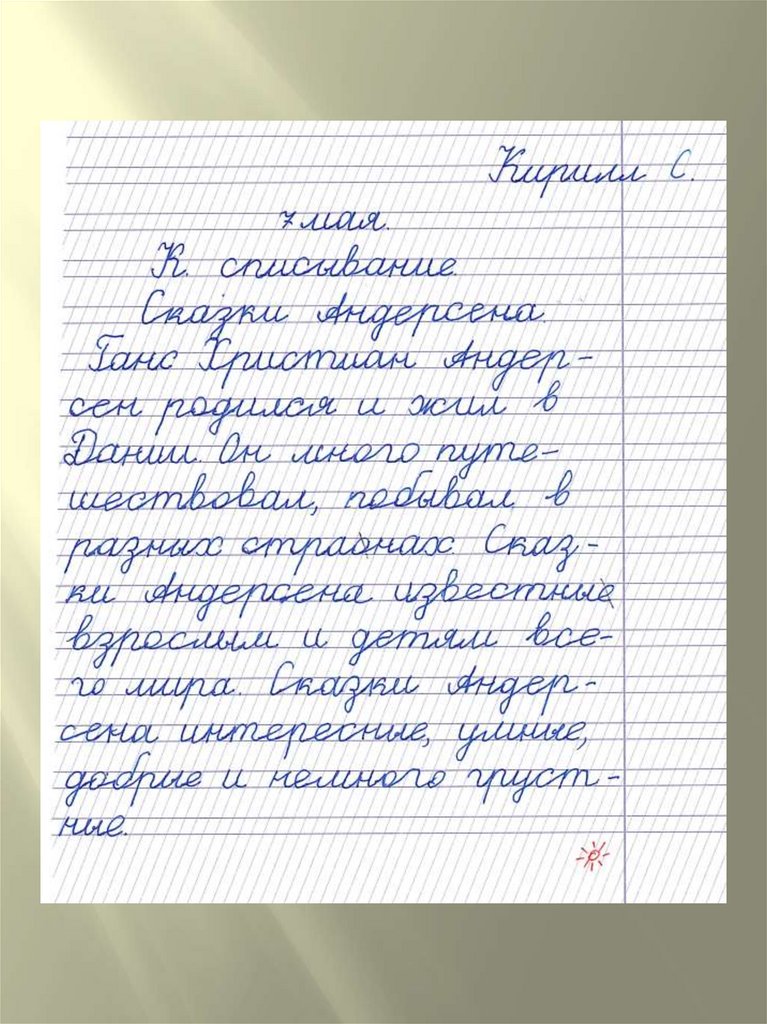 Кирилл С.
7 мая.
К. списывание.
Сказки Андерсена.
Ганс Христиан Андер-
сен родился и жил в
Дании. Он много путе-
шествовал, побывал в
разных странах. Сказ-
ки Андерсена известные
взрослым и детям все-
го мира. Сказки Андер-
сена интересные, умные,
добрые и немного груст-
ные.